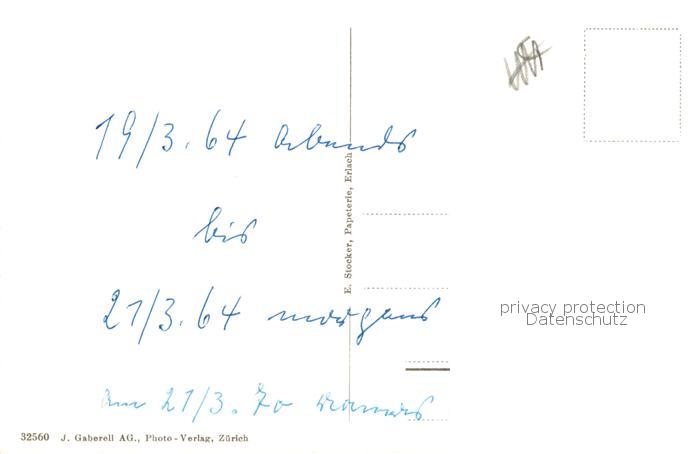 19/3.64 abends
bis
21/3.64 morgens
am 21/3.70
E. Stocker, Papeterie, Erlach
privacy protection
Datenschutz
32560 J. Gaberell AG., Photo-Verlag, Zürich